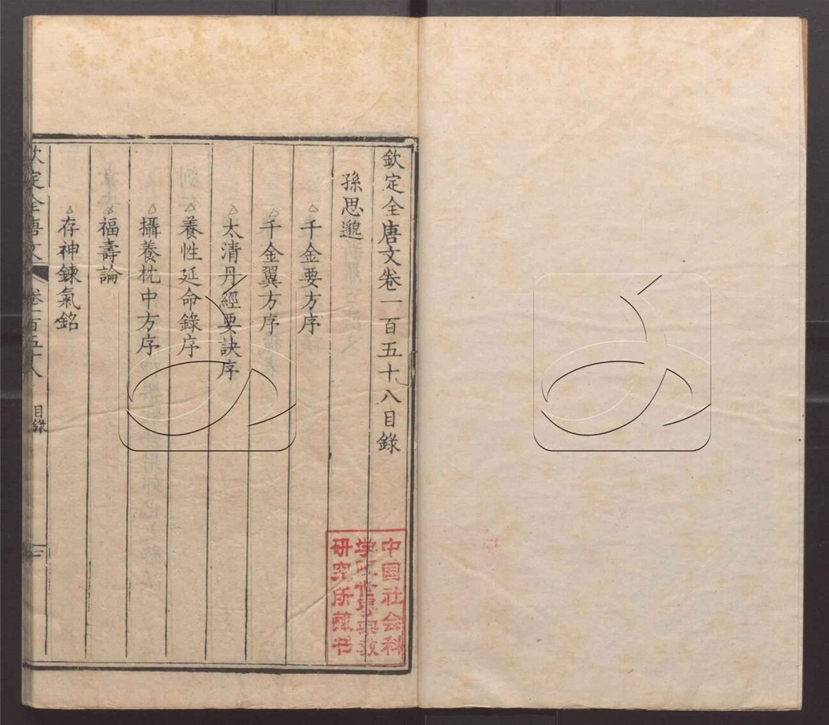 欽定全唐文卷一百五十八目錄
孫思邈
千金要方序
千金翼方序
太清丹經要訣序
養性延命錄序
攝養枕中方序
福壽論
存神鍊氣銘
欽定全唐文 卷一百五十八 目錄 一
中国社会科
学院世界宗教
研究所藏书